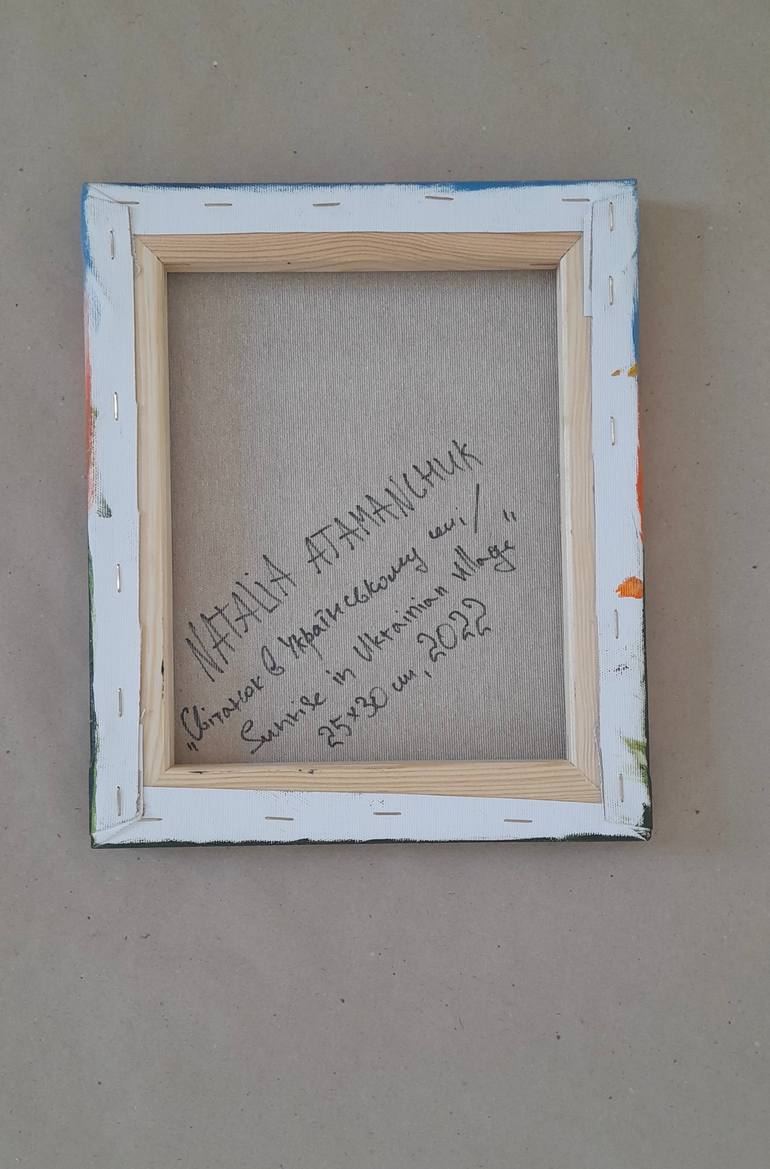 NATALiA ATAMANCHUK
„Світанок в Українському селі/
Sunrise in Ukrainian village"
25x30 cm, 2022